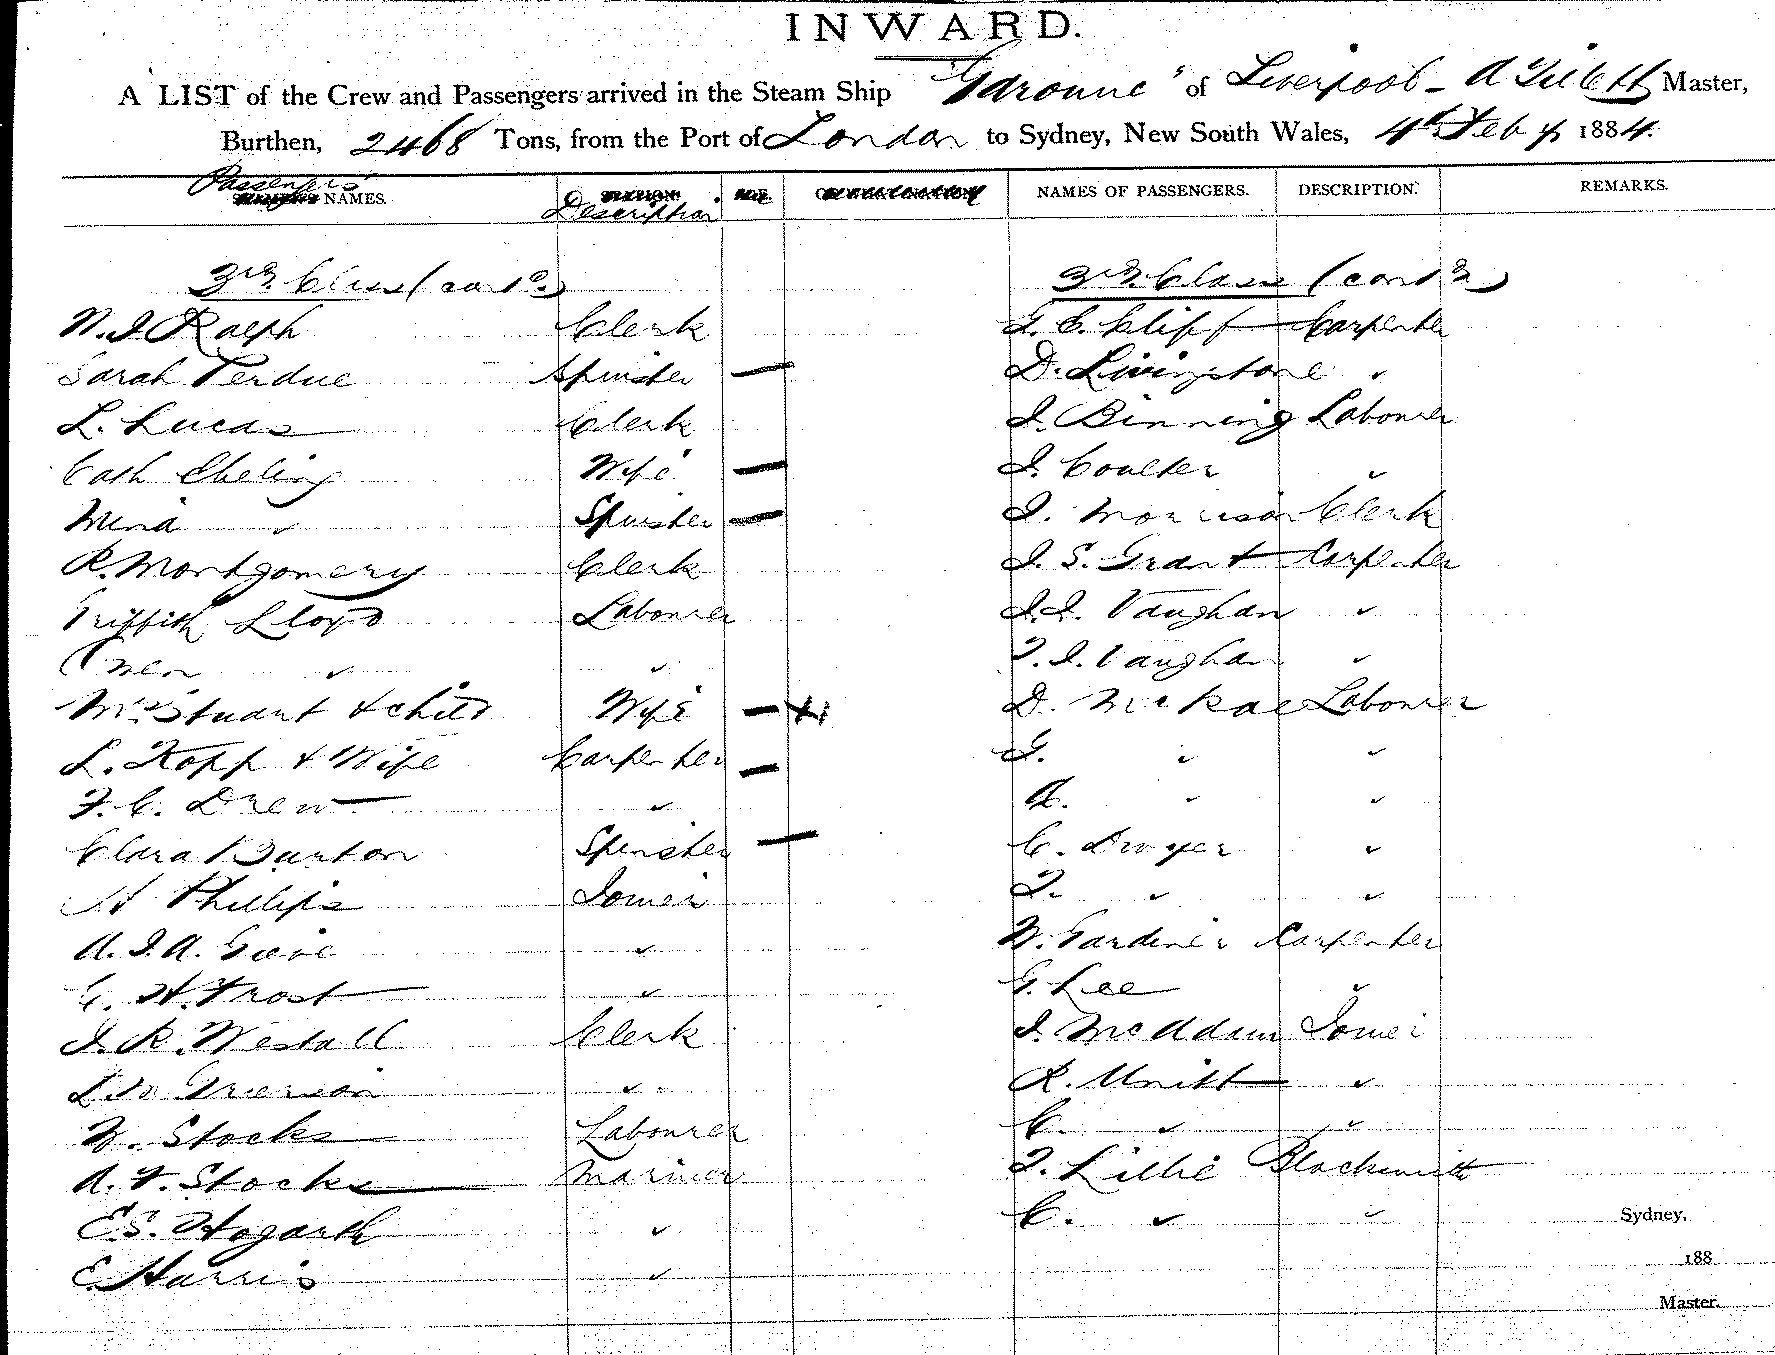 INWARD.
A LIST of the Crew and Passengers arrived in the Steam Ship "Garonne" of Liverpool - A Tillett Master,
Burthen, 2468 Tons, from the Port of London to Sydney, New South Wales, 4th Feby 1884.
Passengers' NAMES. Description NAMES OF PASSENGERS. DESCRIPTION. REMARKS.
3rd Class (contd.) 3rd Class (contd)
N. J. Ralph Clerk G. C. Cliff Carpenter
Sarah Perdue Spinster — D. Livingstone "
L. Lucas Clerk J. Binning Labourer
Cath Ebeling Wife — J. Coulter "
Mina " Spinster — J. Morrison Clerk
R. Montgomery Clerk J. S. Grant Carpenter
Griffith Lloyd Labourer J. J. Vaughan "
Owen " " T. J. Vaughan "
Mrs Stuart & child Wife — D. McRae Labourer
L. Kopp & Wife Carpenter — G. " "
F. C. Drew " A. " "
Clara Burton Spinster — C. Dwyer "
H Phillips Joiner T. " "
A. J. A. W. Gardiner Carpenter
C. H. Frost " G. Lee "
J. R. Westall Clerk J. McAdam Joiner
Grierson " R. Unitt "
W. Stocks Labourer C. " "
A. F. Stocks Mariner T. Lillie Blacksmith
E. S. Hogarth " C. " " Sydney,
E. Harris " 188
Master.